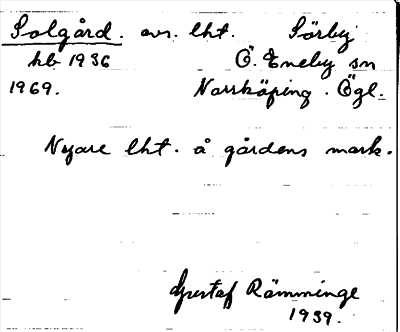 Solgård. avs. lht. Sörby
hb 1936 Ö. Eneby sn
1969. Norrköping. Ögl.
Nyare lht. å gårdens mark.
Gustaf Rämminge
1939.